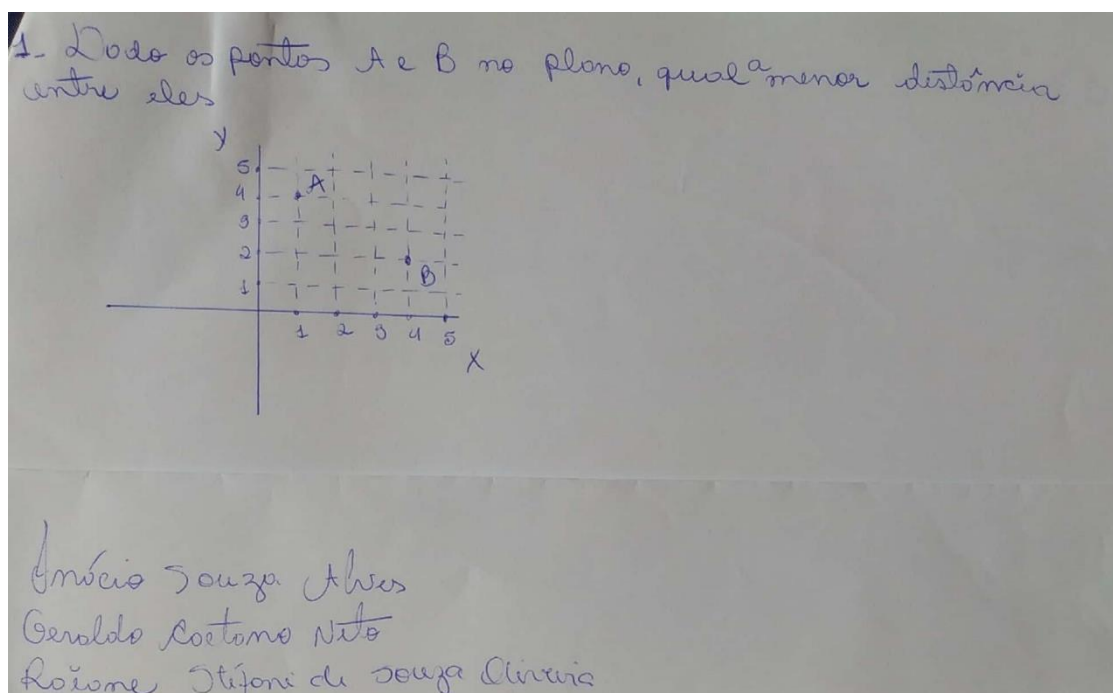 1- Dado os pontos A e B no plano, qual a menor distância
entre eles
y
5
4 A
3
2
B
1
1 2 3 4 5
X
Inácio Souza Alves
Geraldo Caetano Neto
Raiane Stefani de Souza Oliveira